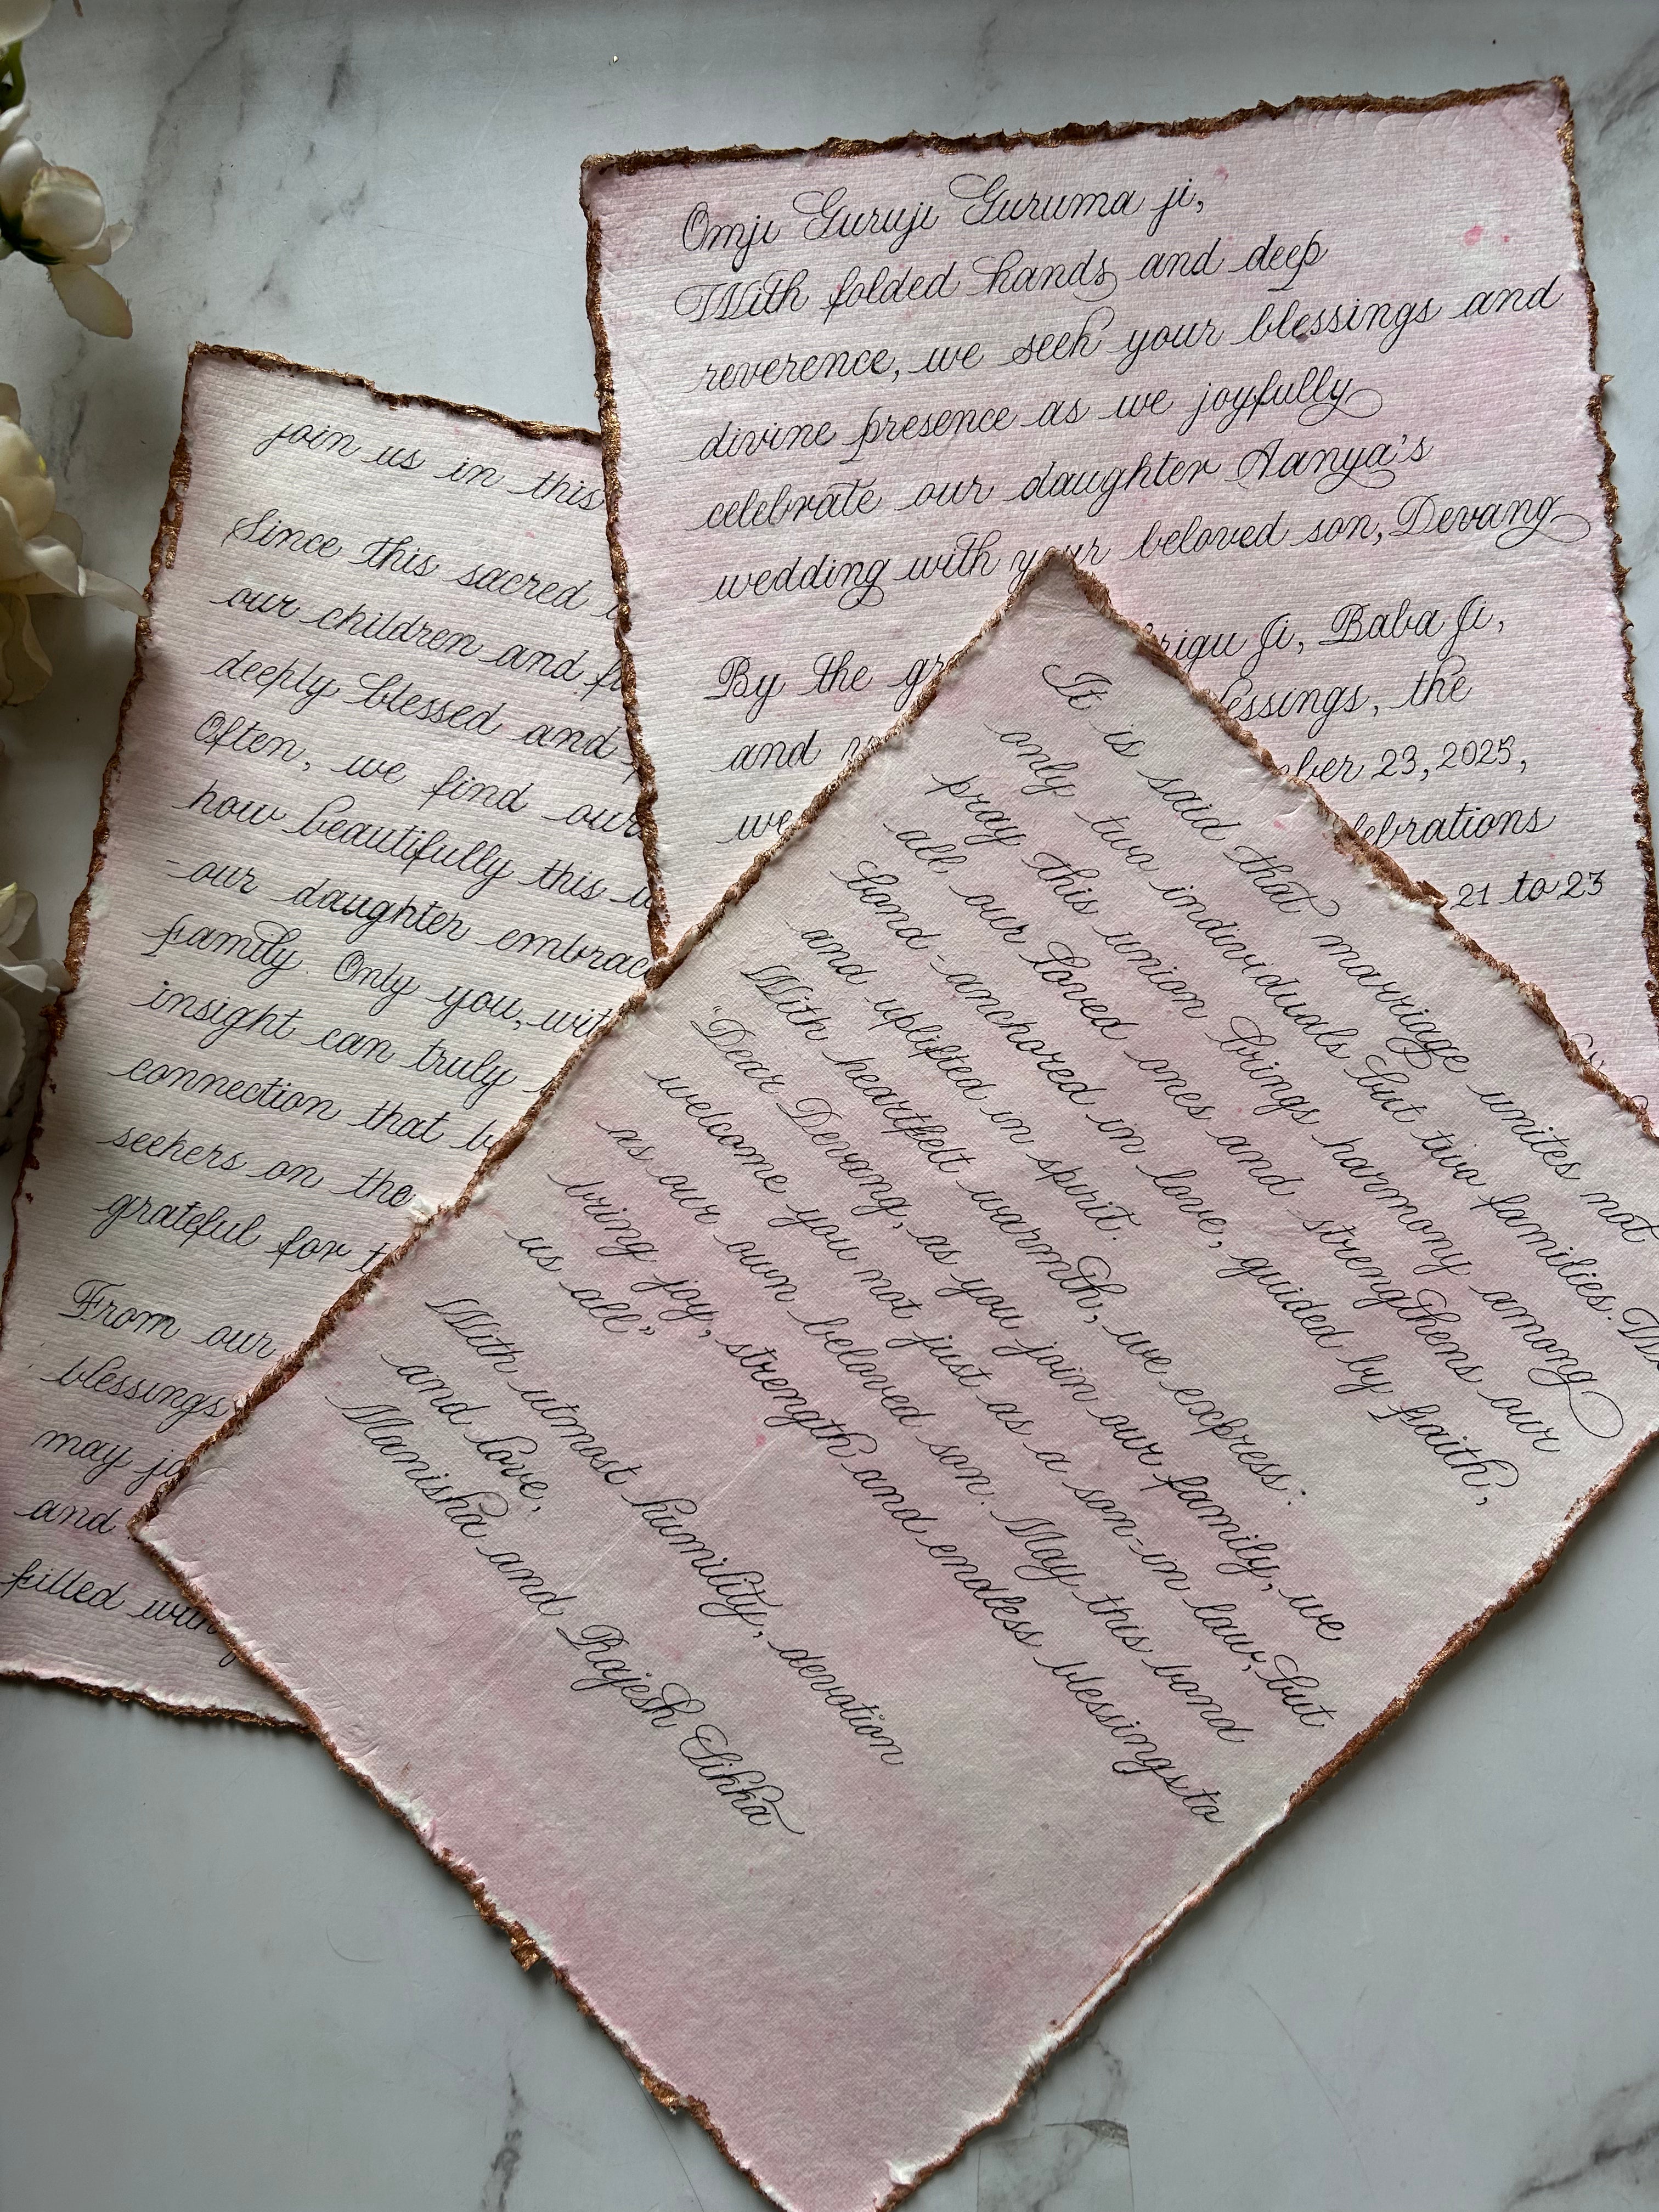 Omji Guruji Guruma ji,
With folded hands and deep
reverence, we seek your blessings and
divine presence as we joyfully
celebrate our daughter Aanya's
wedding with your beloved son, Devang
By the
Ji, Baba Ji,
and
the
23, 2025,
we
21 to 23
join us in this
Since this sacred
our children and
deeply blessed and
Often, we find our
how beautifully this
-our daughter
family. Only you,
insight can truly
connection that
seekers on the
grateful for
From our
blessings
may
and
filled with
It is said that marriage unites not
only two individuals but two families. We
pray this union brings harmony among
all our loved ones and strengthens our
bond-anchored in love, guided by faith,
and uplifted in spirit.
With heartfelt warmth, we express:
"Dear Devang, as you join our family, we
welcome you not just as a son-in law, but
as our own beloved son. May this bond
bring joy, strength and endless blessings to
us all"
With utmost humility, devotion
and love,
Manisha and Rajesh Sikka